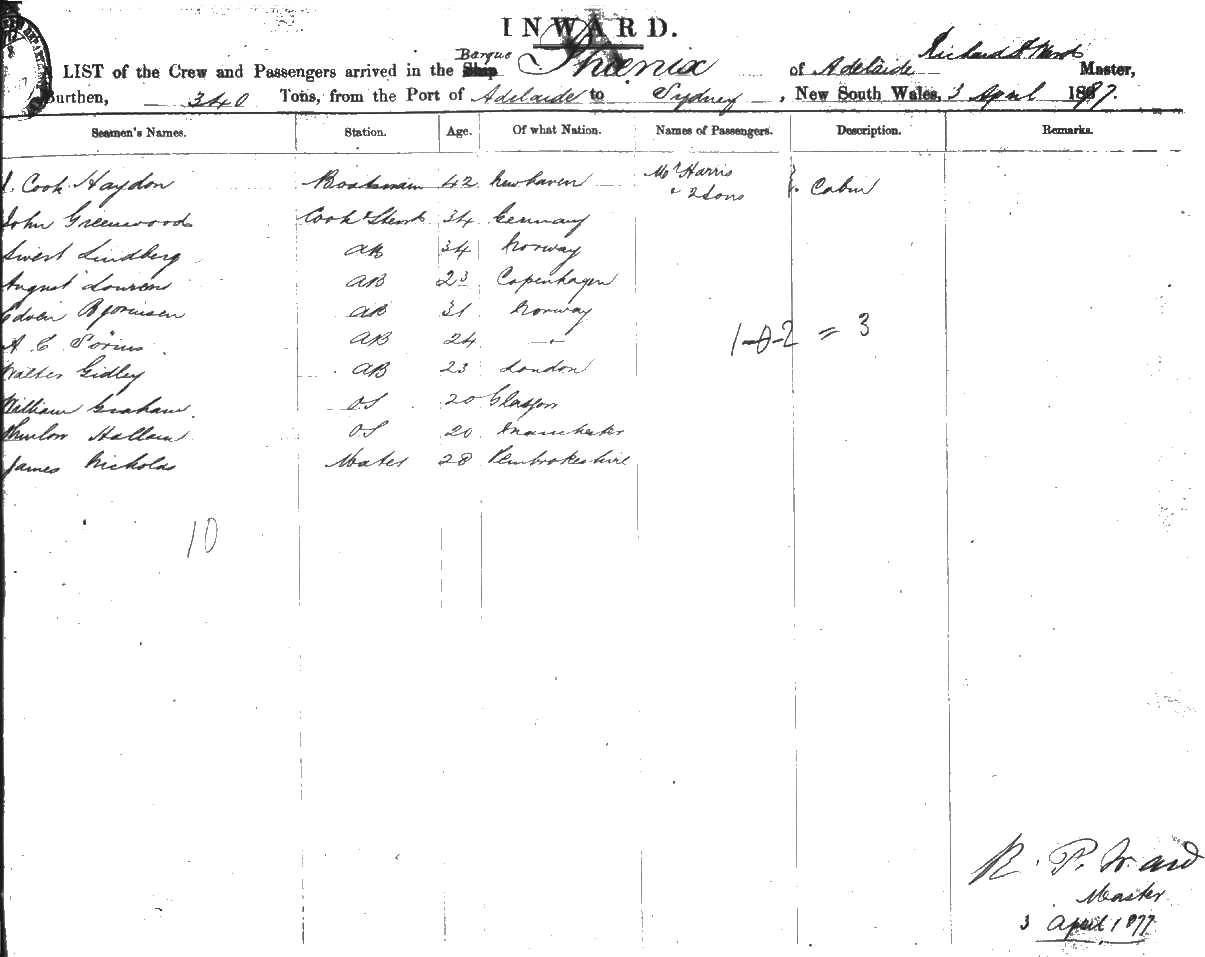 INWARD.
LIST of the Crew and Passengers arrived in the Barque Phœnix of Adelaide Richard P Ward Master,
Burthen, 340 Tons, from the Port of Adelaide to Sydney, New South Wales, 3 April 1877.
Seamen's Names. Station. Age. Of what Nation. Names of Passengers. Description. Remarks.
Cook Haydon Boatswain 42 Newhaven Mr Harris } Cabin
& 2 Sons
John Greenwood Cook & Stewd 34 Germany
Sivert Lindberg AB 34 Norway
August Lourens AB 23 Copenhagen
Edwin Bjornsen AB 31 Norway
A C Sörius AB 24 - " -
1-0-2 = 3
Walter Gidley AB 23 London
William Graham OS 20 Glasgow
Hallam OS 20 Manchester
James Nicholas Mate 28 Pembrokeshire
10
R. P. Ward
Master
3 April 1877